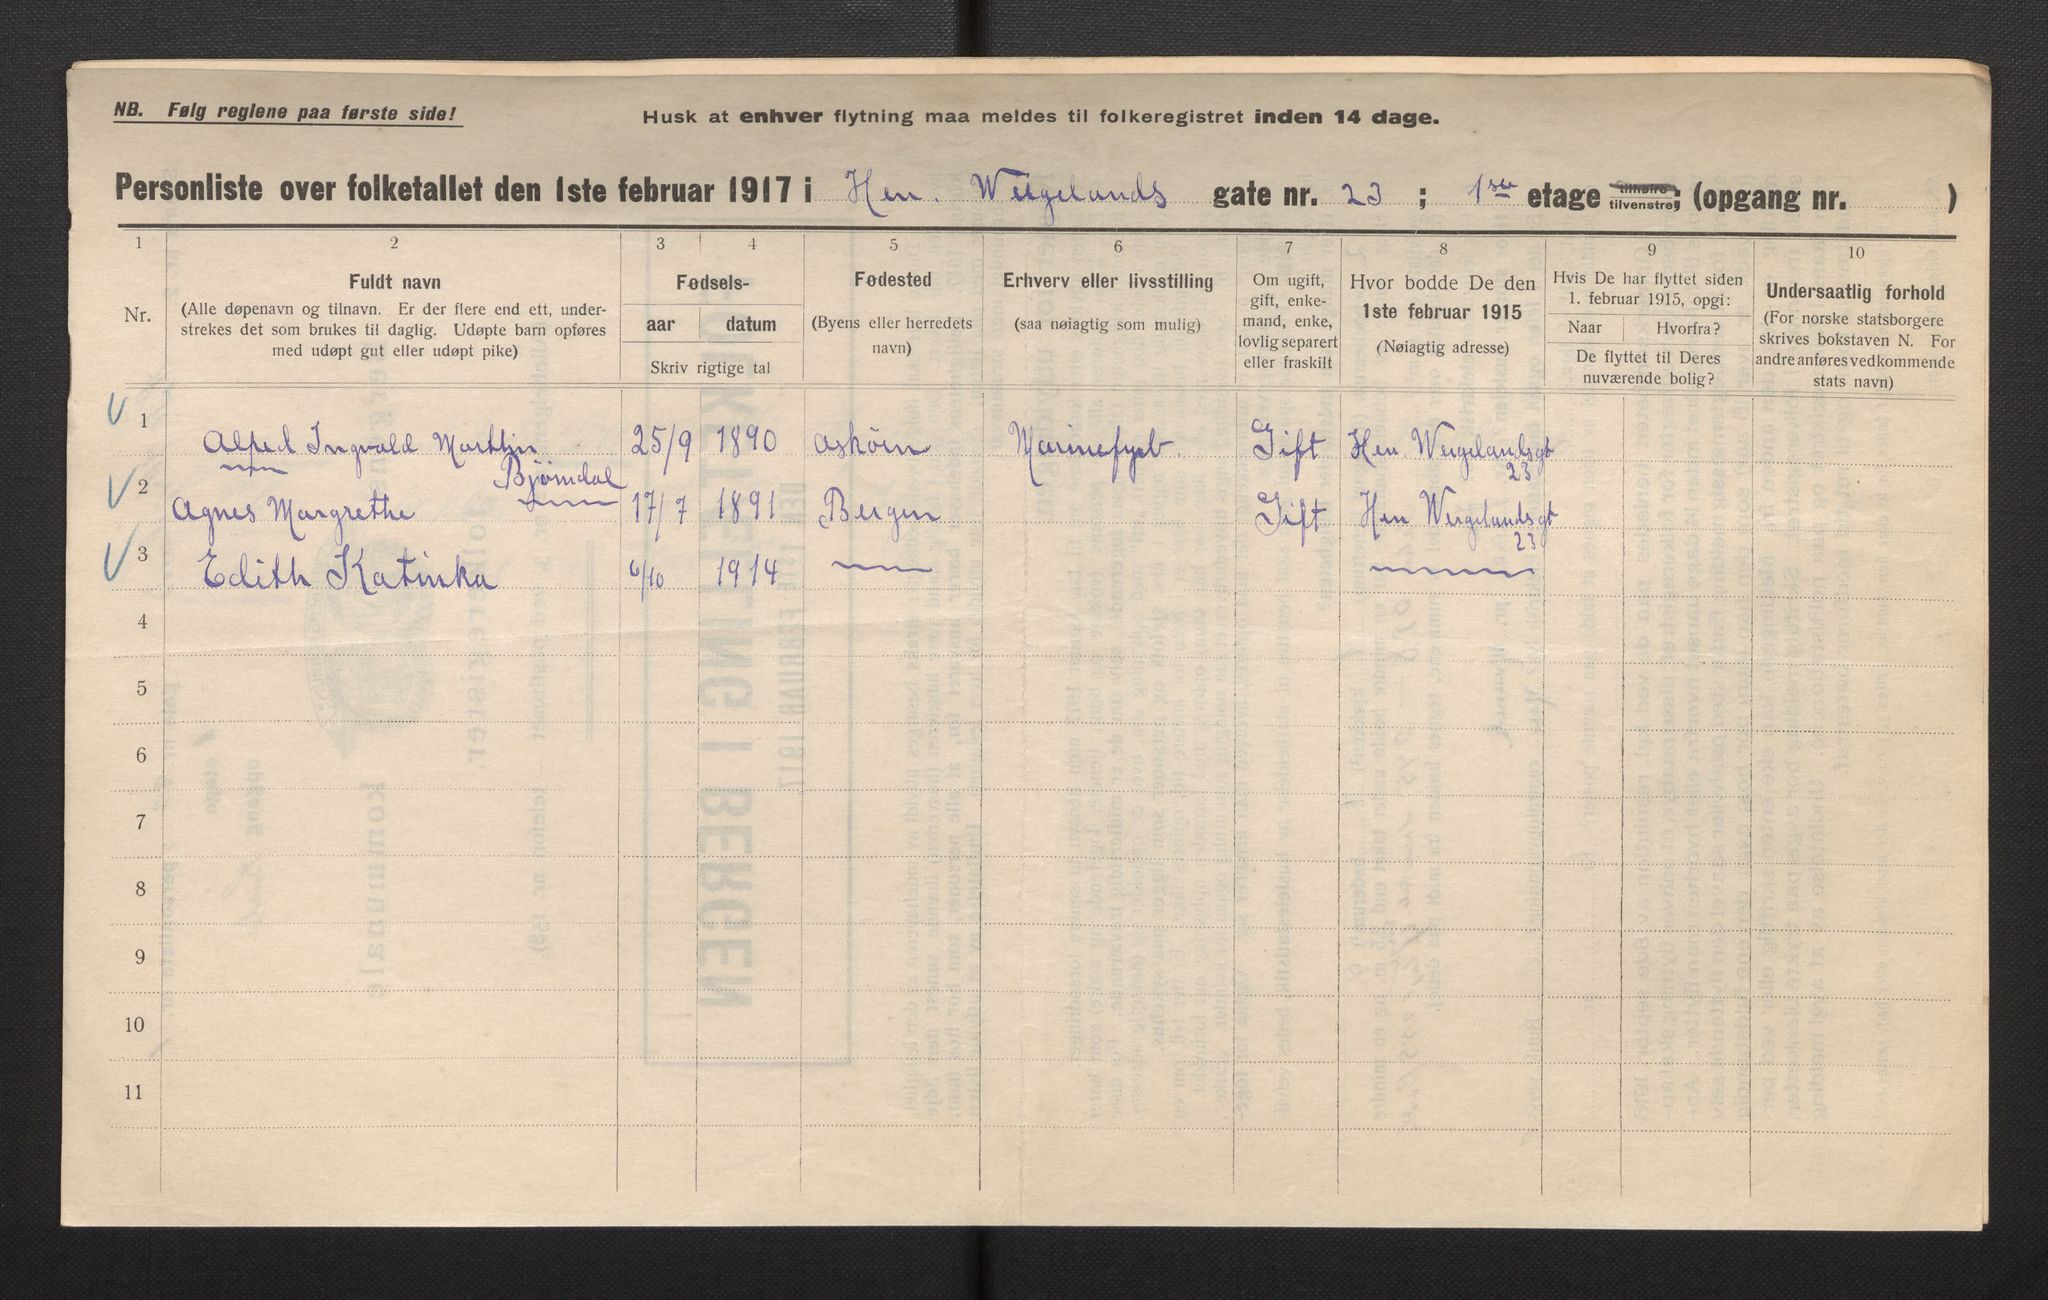 NB. Følg reglene paa første side!
Husk at enhver flytning maa meldes til folkeregistret inden 14 dage.
Personliste over folketallet den 1ste februar 1917 i Hen. Wergelands gate nr. 23 ; 1ste etage tilhøire tilvenstre; (opgang nr. )
1 2 3 4 5 6 7 8 9 10
Nr.
Fuldt navn
(Alle døpenavn og tilnavn. Er der flere end ett, under-
strekes det som brukes til daglig. Udøpte barn opføres
med udøpt gut eller udøpt pike)
Fødsels-
aar datum
Skriv rigtige tal
Fødested
(Byens eller herredets
navn)
Erhverv eller livsstilling
(saa nøiagtig som mulig)
Om ugift,
gift, enke-
mand, enke,
lovlig separert
eller fraskilt
Hvor bodde De den
1ste februar 1915
(Nøiagtig adresse)
Hvis De har flyttet siden
1. februar 1915, opgi:
Naar Hvorfra?
De flyttet til Deres
nuværende bolig?
Undersaatlig forhold
(For norske statsborgere
skrives bokstaven N. For
andre anføres vedkommende
stats navn)
1 Alfred Ingvald Marthin 25/9 1890 Askøen Gift Hen. Wergelandsgt
Bjørndal 23
2 Agnes Margrethe 17/7 1891 Bergen Gift Hen Wergelandsgt
23
3 Edith Katinka 6/10 1914
4
5
6
7
8
9
10
11